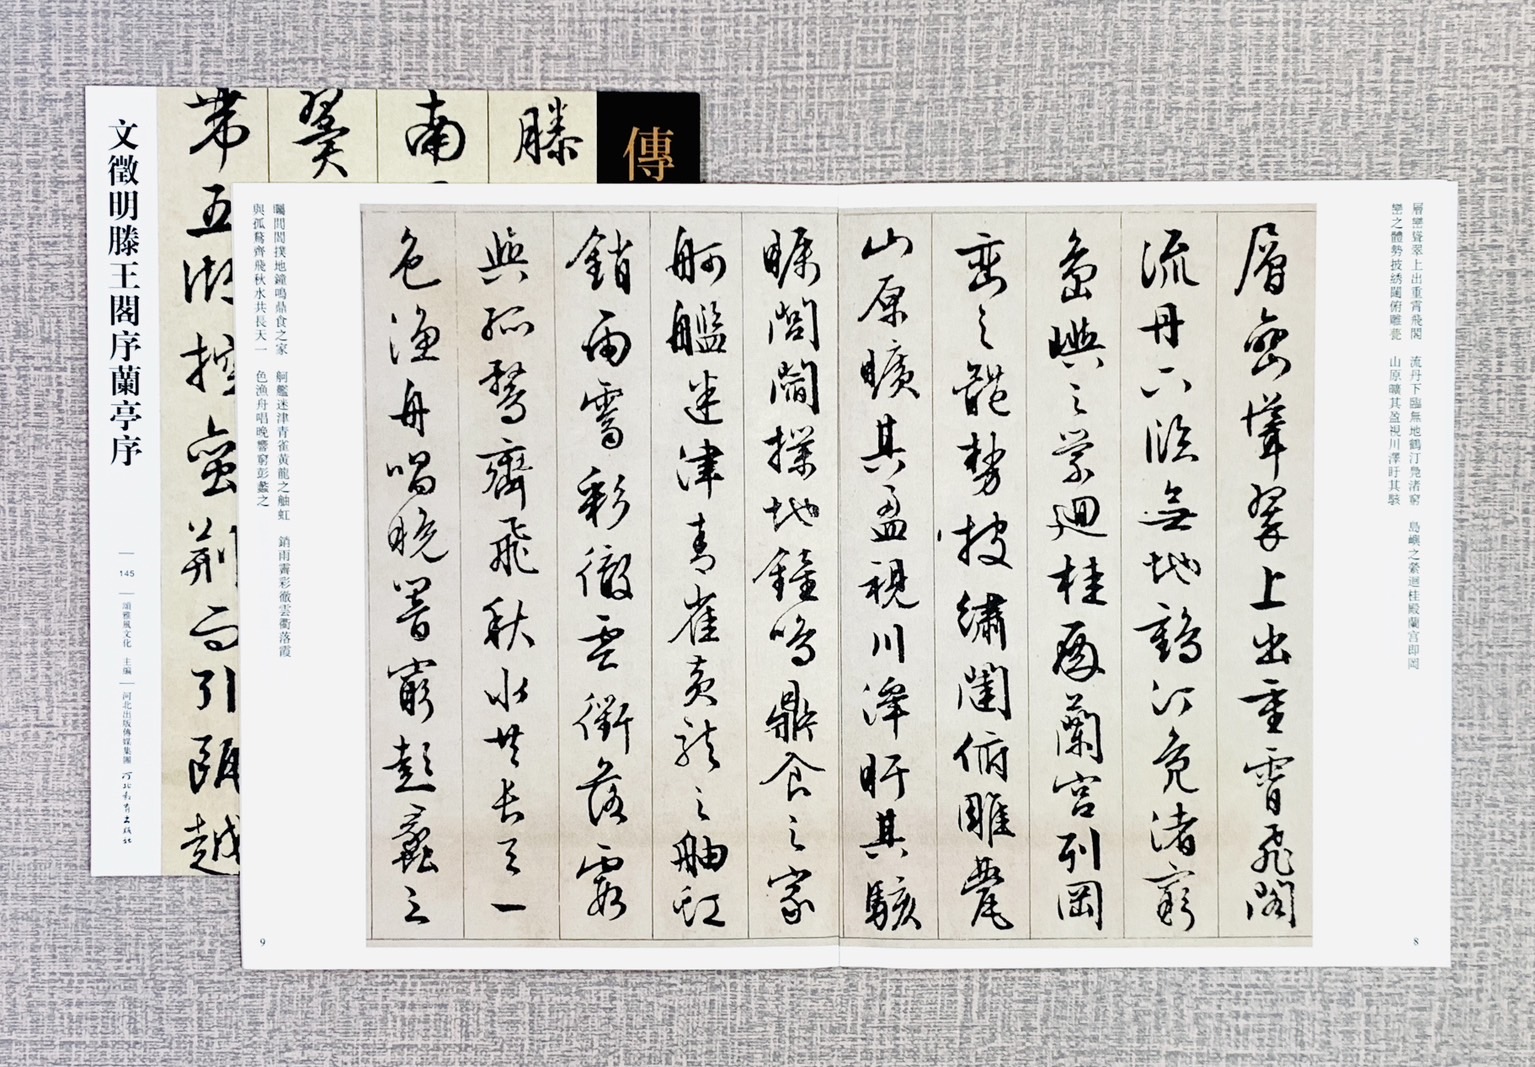 層巒聳翠上出重霄飛閣　流丹下臨無地鶴汀鳧渚窮　島嶼之縈迴桂殿蘭宮即岡
巒之體勢披綉闥俯雕甍　山原曠其盈視川澤盱其駭
層巒聳翠上出重霄飛閣
流丹下臨無地鶴汀鳧渚窮
島嶼之縈迴桂殿蘭宮列岡
巒之體勢披繡闥俯雕甍
山原曠其盈視川澤盱其駭
矚閭閻撲地鐘鳴鼎食之家
舸艦迷津青雀黃龍之舳虹
銷雨霽彩徹雲衢落霞
與孤鶩齊飛秋水共長天一
色漁舟唱晚響窮彭蠡之
矚閭閻撲地鐘鳴鼎食之家　舸艦迷津青雀黃龍之舳虹　銷雨霽彩徹雲衢落霞
與孤鶩齊飛秋水共長天一　色漁舟唱晚響窮彭蠡之
8
9
傳
滕
南
翼
帶五湖控蠻荊而引甌越
文徵明滕王閣序蘭亭序
145
頌雅風文化 主編
河北出版傳媒集團
河北教育出版社